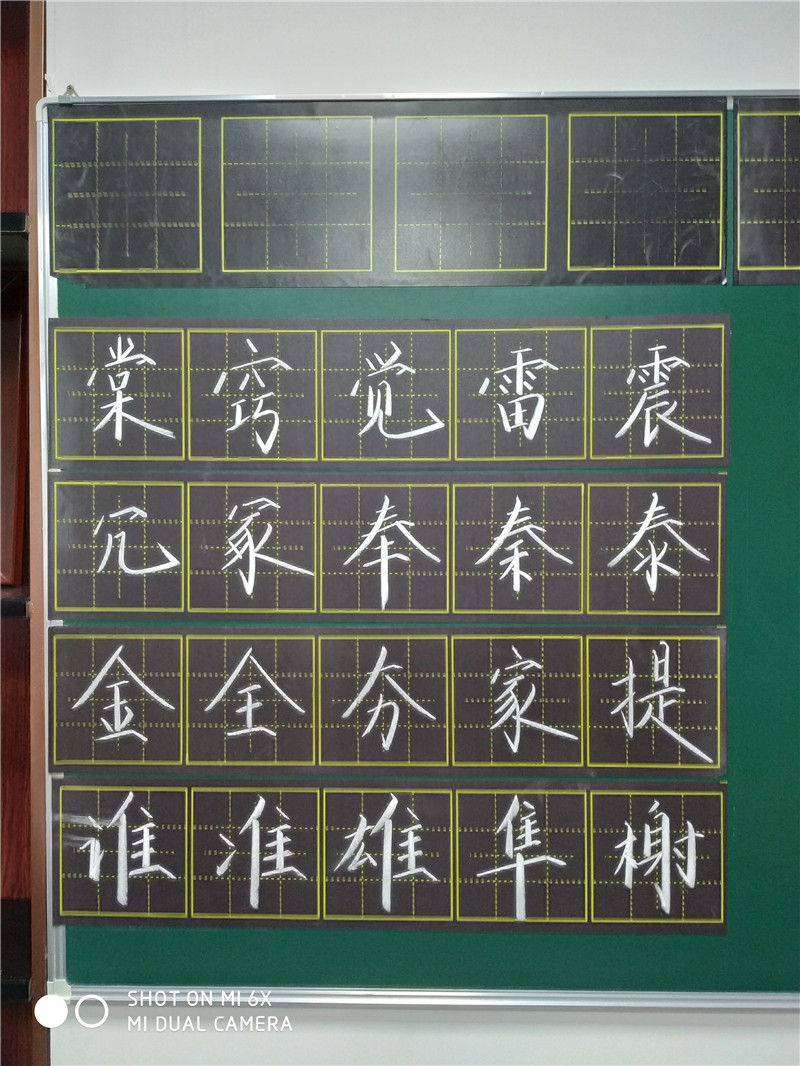 棠窍觉雷震
冗冢奉秦泰
金全夯家提
谁准雄隼榭
SHOT ON MI 6X
MI DUAL CAMERA